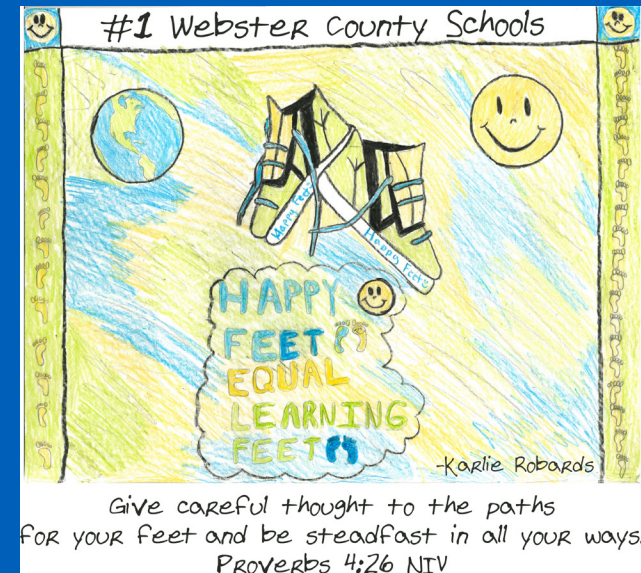 #1 Webster County Schools
Happy Feet
Happy Feet
HAPPY
FEET
EQUAL
LEARNING
FEET
-Karlie Robards
Give careful thought to the paths
for your feet and be steadfast in all your ways.
Proverbs 4:26 NIV